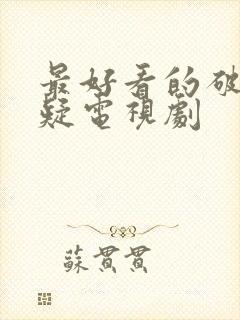 最好看的破
疑電視劇
蘇貫貫